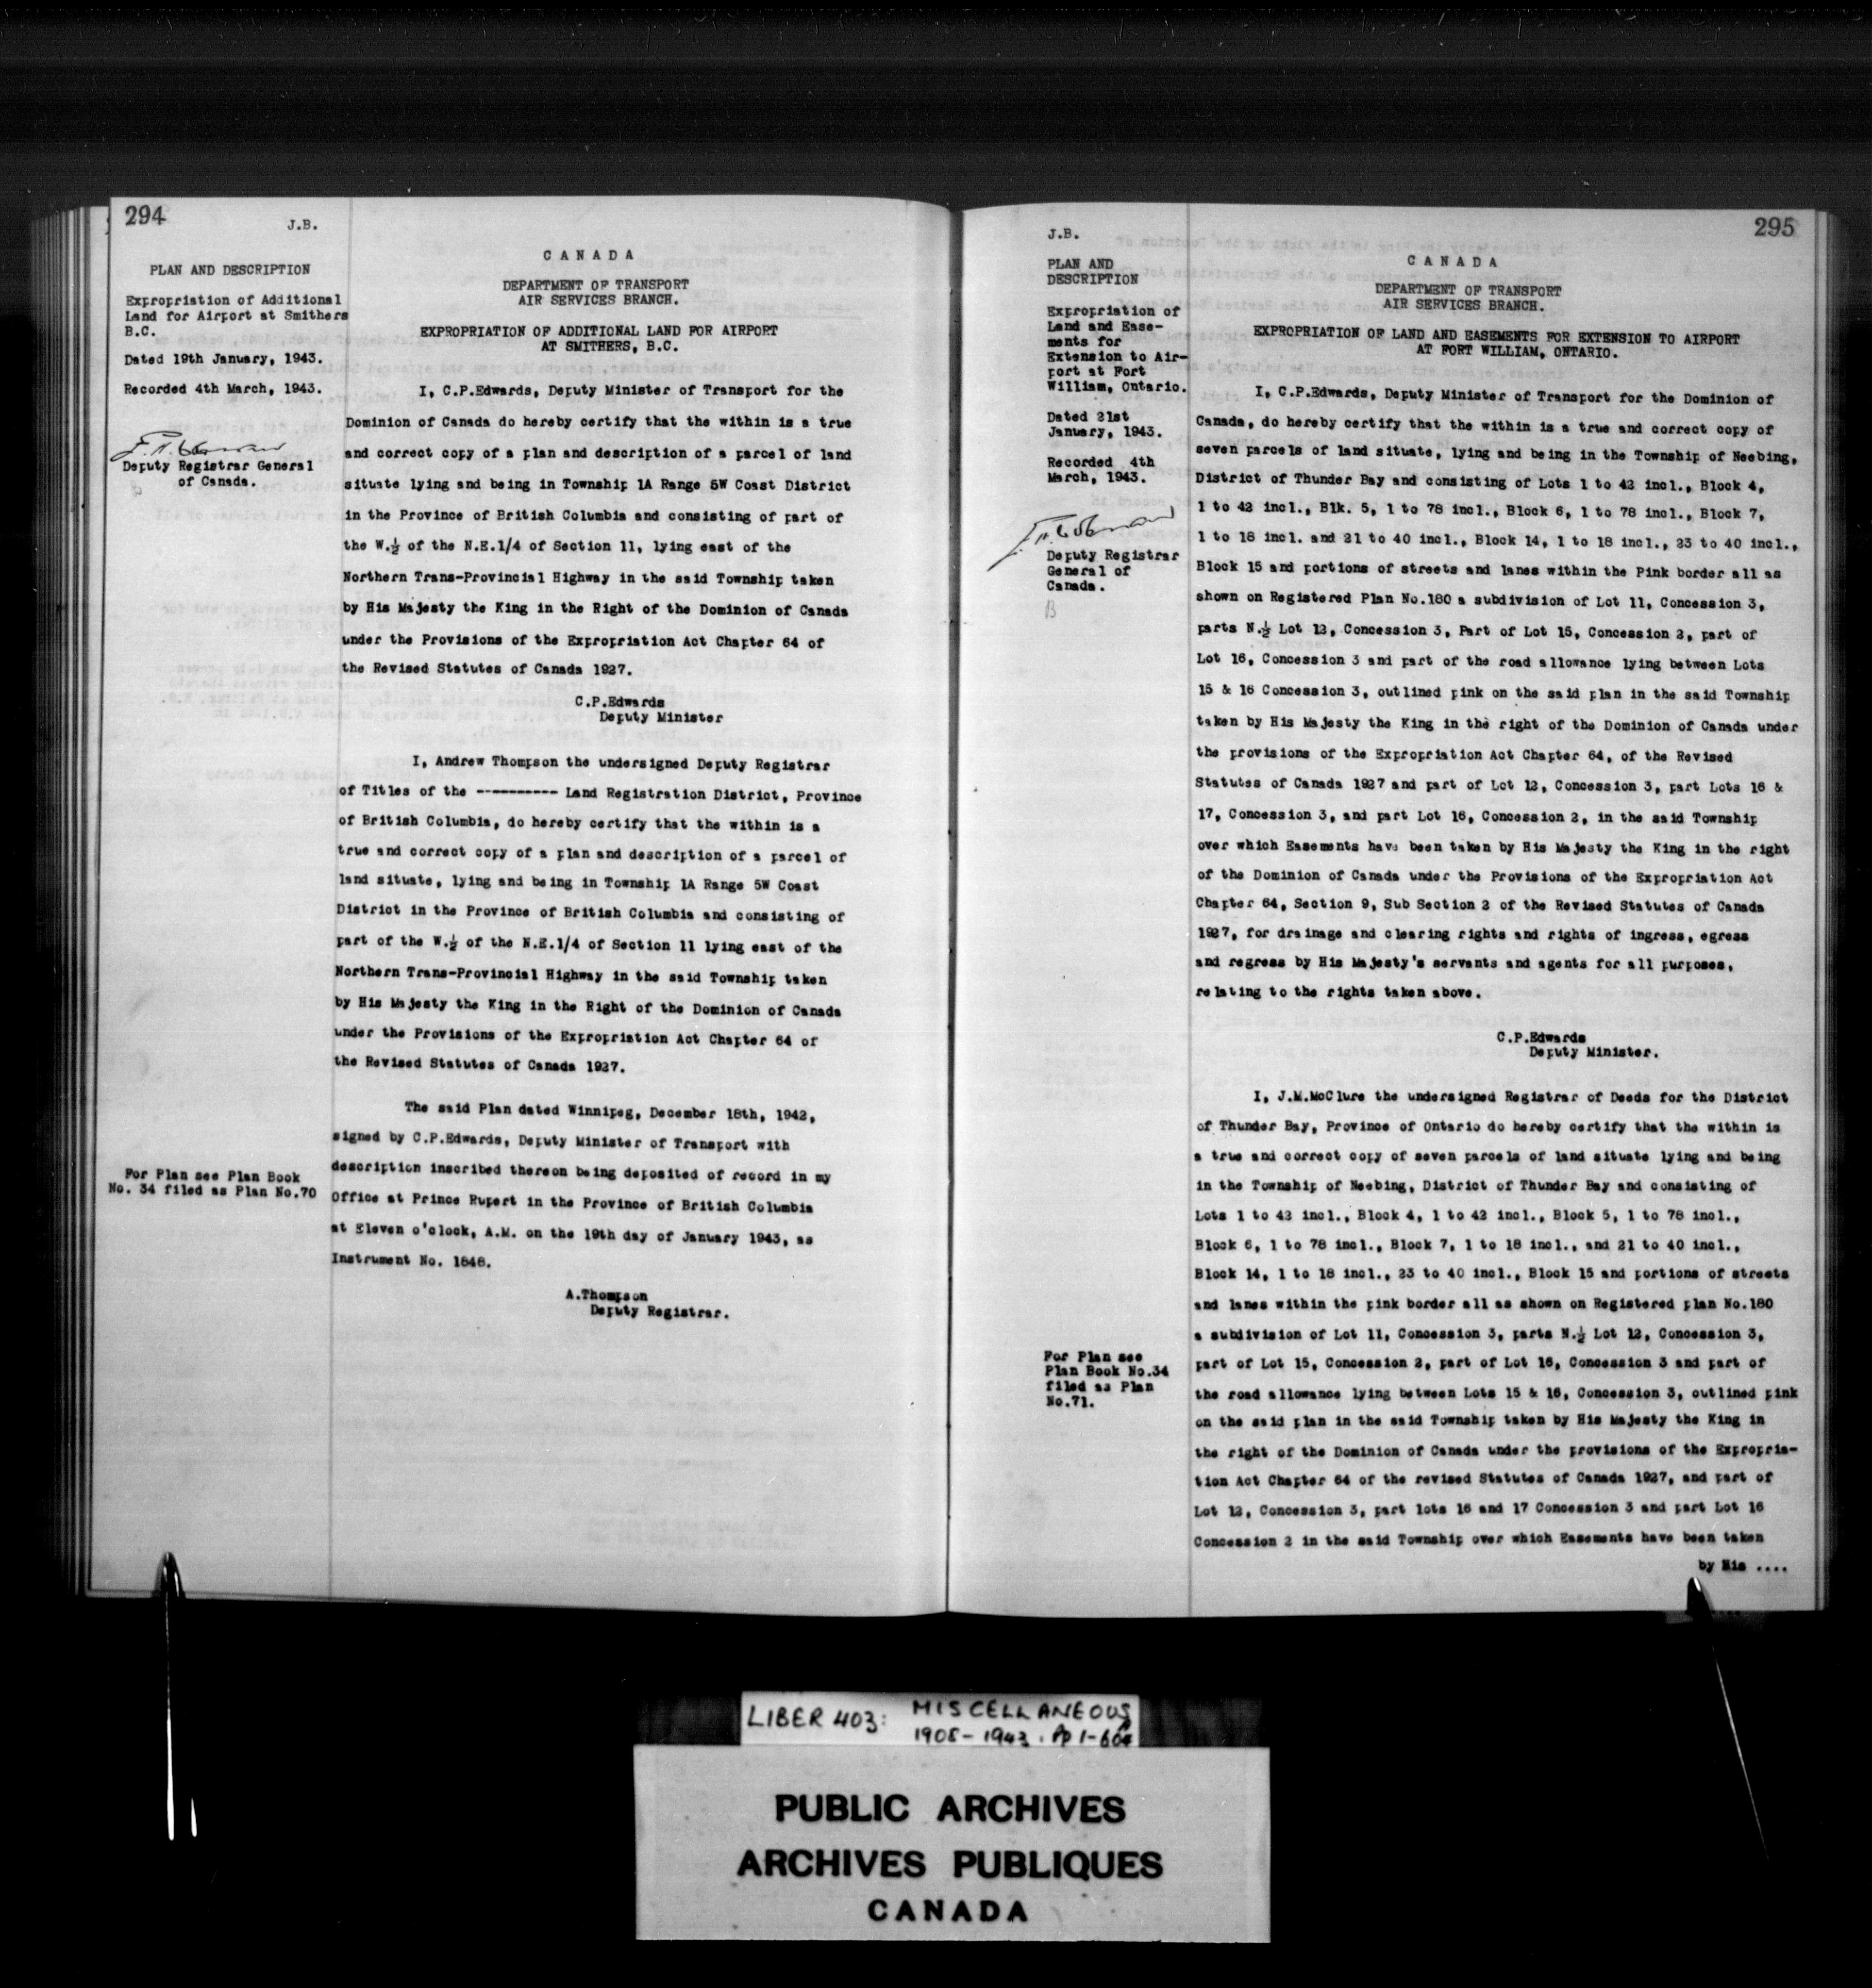 294
J.B.
PLAN AND DESCRIPTION
Expropriation of Additional
Land for Airport at Smithers
B.C.
Dated 19th January, 1943.
Recorded 4th March, 1943.
Deputy Registrar General
of Canada.
For Plan see Plan Book
No. 34 filed as Plan No.70
CANADA
DEPARTMENT OF TRANSPORT
AIR SERVICES BRANCH.
EXPROPRIATION OF ADDITIONAL LAND FOR AIRPORT
AT SMITHERS, B.C.
I, C.P.Edwards, Deputy Minister of Transport for the
Dominion of Canada do hereby certify that the within is a true
and correct copy of a plan and description of a parcel of land
situate lying and being in Township 1A Range 5W Coast District
in the Province of British Columbia and consisting of part of
the W.½ of the N.E.1/4 of Section 11, lying east of the
Northern Trans-Provincial Highway in the said Township taken
by His Majesty the King in the Right of the Dominion of Canada
under the Provisions of the Expropriation Act Chapter 64 of
the Revised Statutes of Canada 1927.
C.P.Edwards
Deputy Minister
I, Andrew Thompson the undersigned Deputy Registrar
of Titles of the ---------- Land Registration District, Province
of British Columbia, do hereby certify that the within is a
true and correct copy of a plan and description of a parcel of
land situate, lying and being in Township 1A Range 5W Coast
District in the Province of British Columbia and consisting of
part of the W.½ of the N.E.1/4 of Section 11 lying east of the
Northern Trans-Provincial Highway in the said Township taken
by His Majesty the King in the Right of the Dominion of Canada
under the Provisions of the Expropriation Act Chapter 64 of
the Revised Statutes of Canada 1927.
The said Plan dated Winnipeg, December 18th, 1942,
signed by C.P.Edwards, Deputy Minister of Transport with
description inscribed thereon being deposited of record in my
Office at Prince Rupert in the Province of British Columbia
at Eleven o'clock, A.M. on the 19th day of January 1943, as
Instrument No. 1848.
A.Thompson
Deputy Registrar.
295
J.B.
PLAN AND
DESCRIPTION
Expropriation of
Land and Ease-
ments for
Extension to Air-
port at Fort
William, Ontario.
Dated 21st
January, 1943.
Recorded 4th
March, 1943.
Deputy Registrar
General of
Canada.
B
For Plan see
Plan Book No.34
filed as Plan
No.71.
CANADA
DEPARTMENT OF TRANSPORT
AIR SERVICES BRANCH.
EXPROPRIATION OF LAND AND EASEMENTS FOR EXTENSION TO AIRPORT
AT FORT WILLIAM, ONTARIO.
I, C.P.Edwards, Deputy Minister of Transport for the Dominion of
Canada, do hereby certify that the within is a true and correct copy of
seven parcels of land situate, lying and being in the Township of Neebing,
District of Thunder Bay and consisting of Lots 1 to 42 incl., Block 4,
1 to 42 incl., Blk. 5, 1 to 78 incl., Block 6, 1 to 78 incl., Block 7,
1 to 18 incl. and 21 to 40 incl., Block 14, 1 to 18 incl., 23 to 40 incl.,
Block 15 and portions of streets and lanes within the Pink border all as
shown on Registered Plan No.180 a subdivision of Lot 11, Concession 3,
parts N.½ Lot 12, Concession 3, Part of Lot 15, Concession 2, part of
Lot 16, Concession 3 and part of the road allowance lying between Lots
15 & 16 Concession 3, outlined pink on the said plan in the said Township
taken by His Majesty the King in the right of the Dominion of Canada under
the provisions of the Expropriation Act Chapter 64, of the Revised
Statutes of Canada 1927 and part of Lot 12, Concession 3, part Lots 16 &
17, Concession 3, and part Lot 16, Concession 2, in the said Township
over which Easements have been taken by His Majesty the King in the right
of the Dominion of Canada under the Provisions of the Expropriation Act
Chapter 64, Section 9, Sub Section 2 of the Revised Statutes of Canada
1927, for drainage and clearing rights and rights of ingress, egress
and regress by His Majesty's servants and agents for all purposes,
relating to the rights taken above.
C.P.Edwards
Deputy Minister.
I, J.M.McClure the undersigned Registrar of Deeds for the District
of Thunder Bay, Province of Ontario do hereby certify that the within is
a true and correct copy of seven parcels of land situate lying and being
in the Township of Neebing, District of Thunder Bay and consisting of
Lots 1 to 42 incl., Block 4, 1 to 42 incl., Block 5, 1 to 78 incl.,
Block 6, 1 to 78 incl., Block 7, 1 to 18 incl., and 21 to 40 incl.,
Block 14, 1 to 18 incl., 23 to 40 incl., Block 15 and portions of streets
and lanes within the pink border all as shown on Registered plan No.180
a subdivision of Lot 11, Concession 3, parts N.½ Lot 12, Concession 3,
part of Lot 15, Concession 2, part of Lot 16, Concession 3 and part of
the road allowance lying between Lots 15 & 16, Concession 3, outlined pink
on the said plan in the said Township taken by His Majesty the King in
the right of the Dominion of Canada under the provisions of the Expropria-
tion Act Chapter 64 of the revised Statutes of Canada 1927, and part of
Lot 12, Concession 3, part lots 16 and 17 Concession 3 and part Lot 16
Concession 2 in the said Township over which Easements have been taken
by His ....
LIBER 403: MISCELLANEOUS
1905-1943. Pp 1-
PUBLIC ARCHIVES
ARCHIVES PUBLIQUES
CANADA